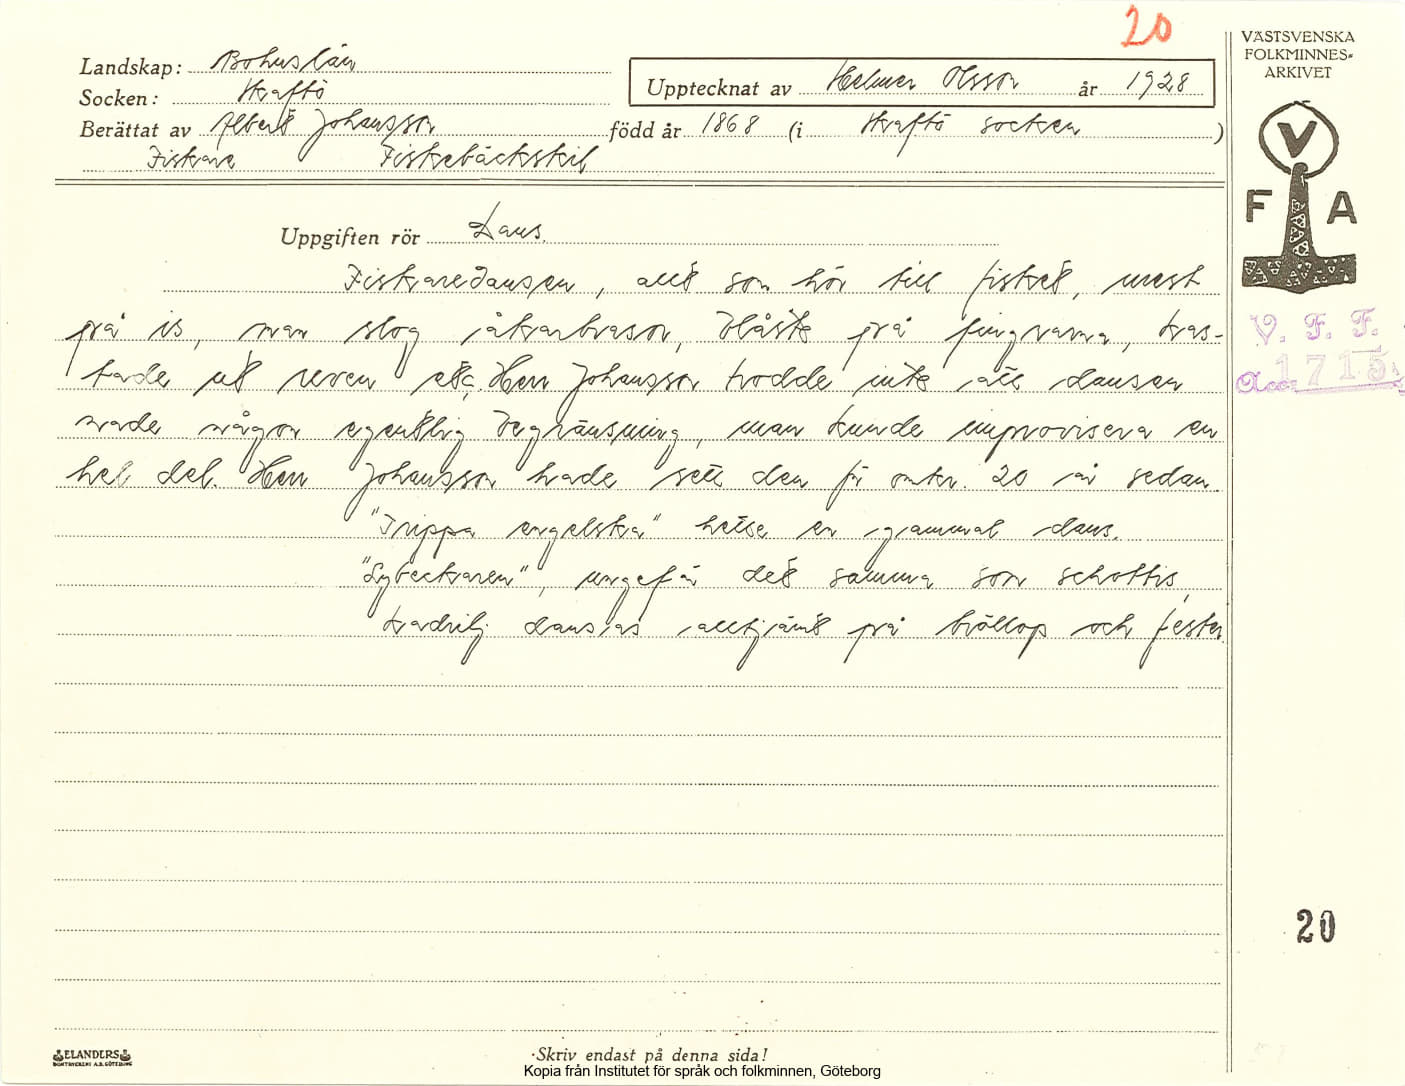 20
VÄSTSVENSKA
FOLKMINNES-
ARKIVET
Landskap: Bohuslän
Socken: Skaftö
Upptecknat av Helmer Olsson år 1928
Berättat av Albert Johansson född år 1868 (i Skaftö socken)
Fiskare Fiskebäckskil
V
F A
Uppgiften rör Dans.
Fiskaredansen, allt som hör till fisket, mest
på is, man slog åkarbrasor, blåste på fingrarna, kas-
tade ut reven etc. Herr Johansson trodde inte att dansen
hade någon egentlig begränsning, man kunde improvisera en
hel del. Herr Johansson hade sett den för omkr. 20 år sedan.
"Trippa engelska" hette en gammal dans.
"Lybeckaren", ungefär det samma som schottis,
kadrilj dansas alltjämt på bröllop och fester.
V. F. F.
Acc: 1715
20
ELANDERS
BOKTRYCKERI A.B. GÖTEBORG
Skriv endast på denna sida!
Kopia från Institutet för språk och folkminnen, Göteborg